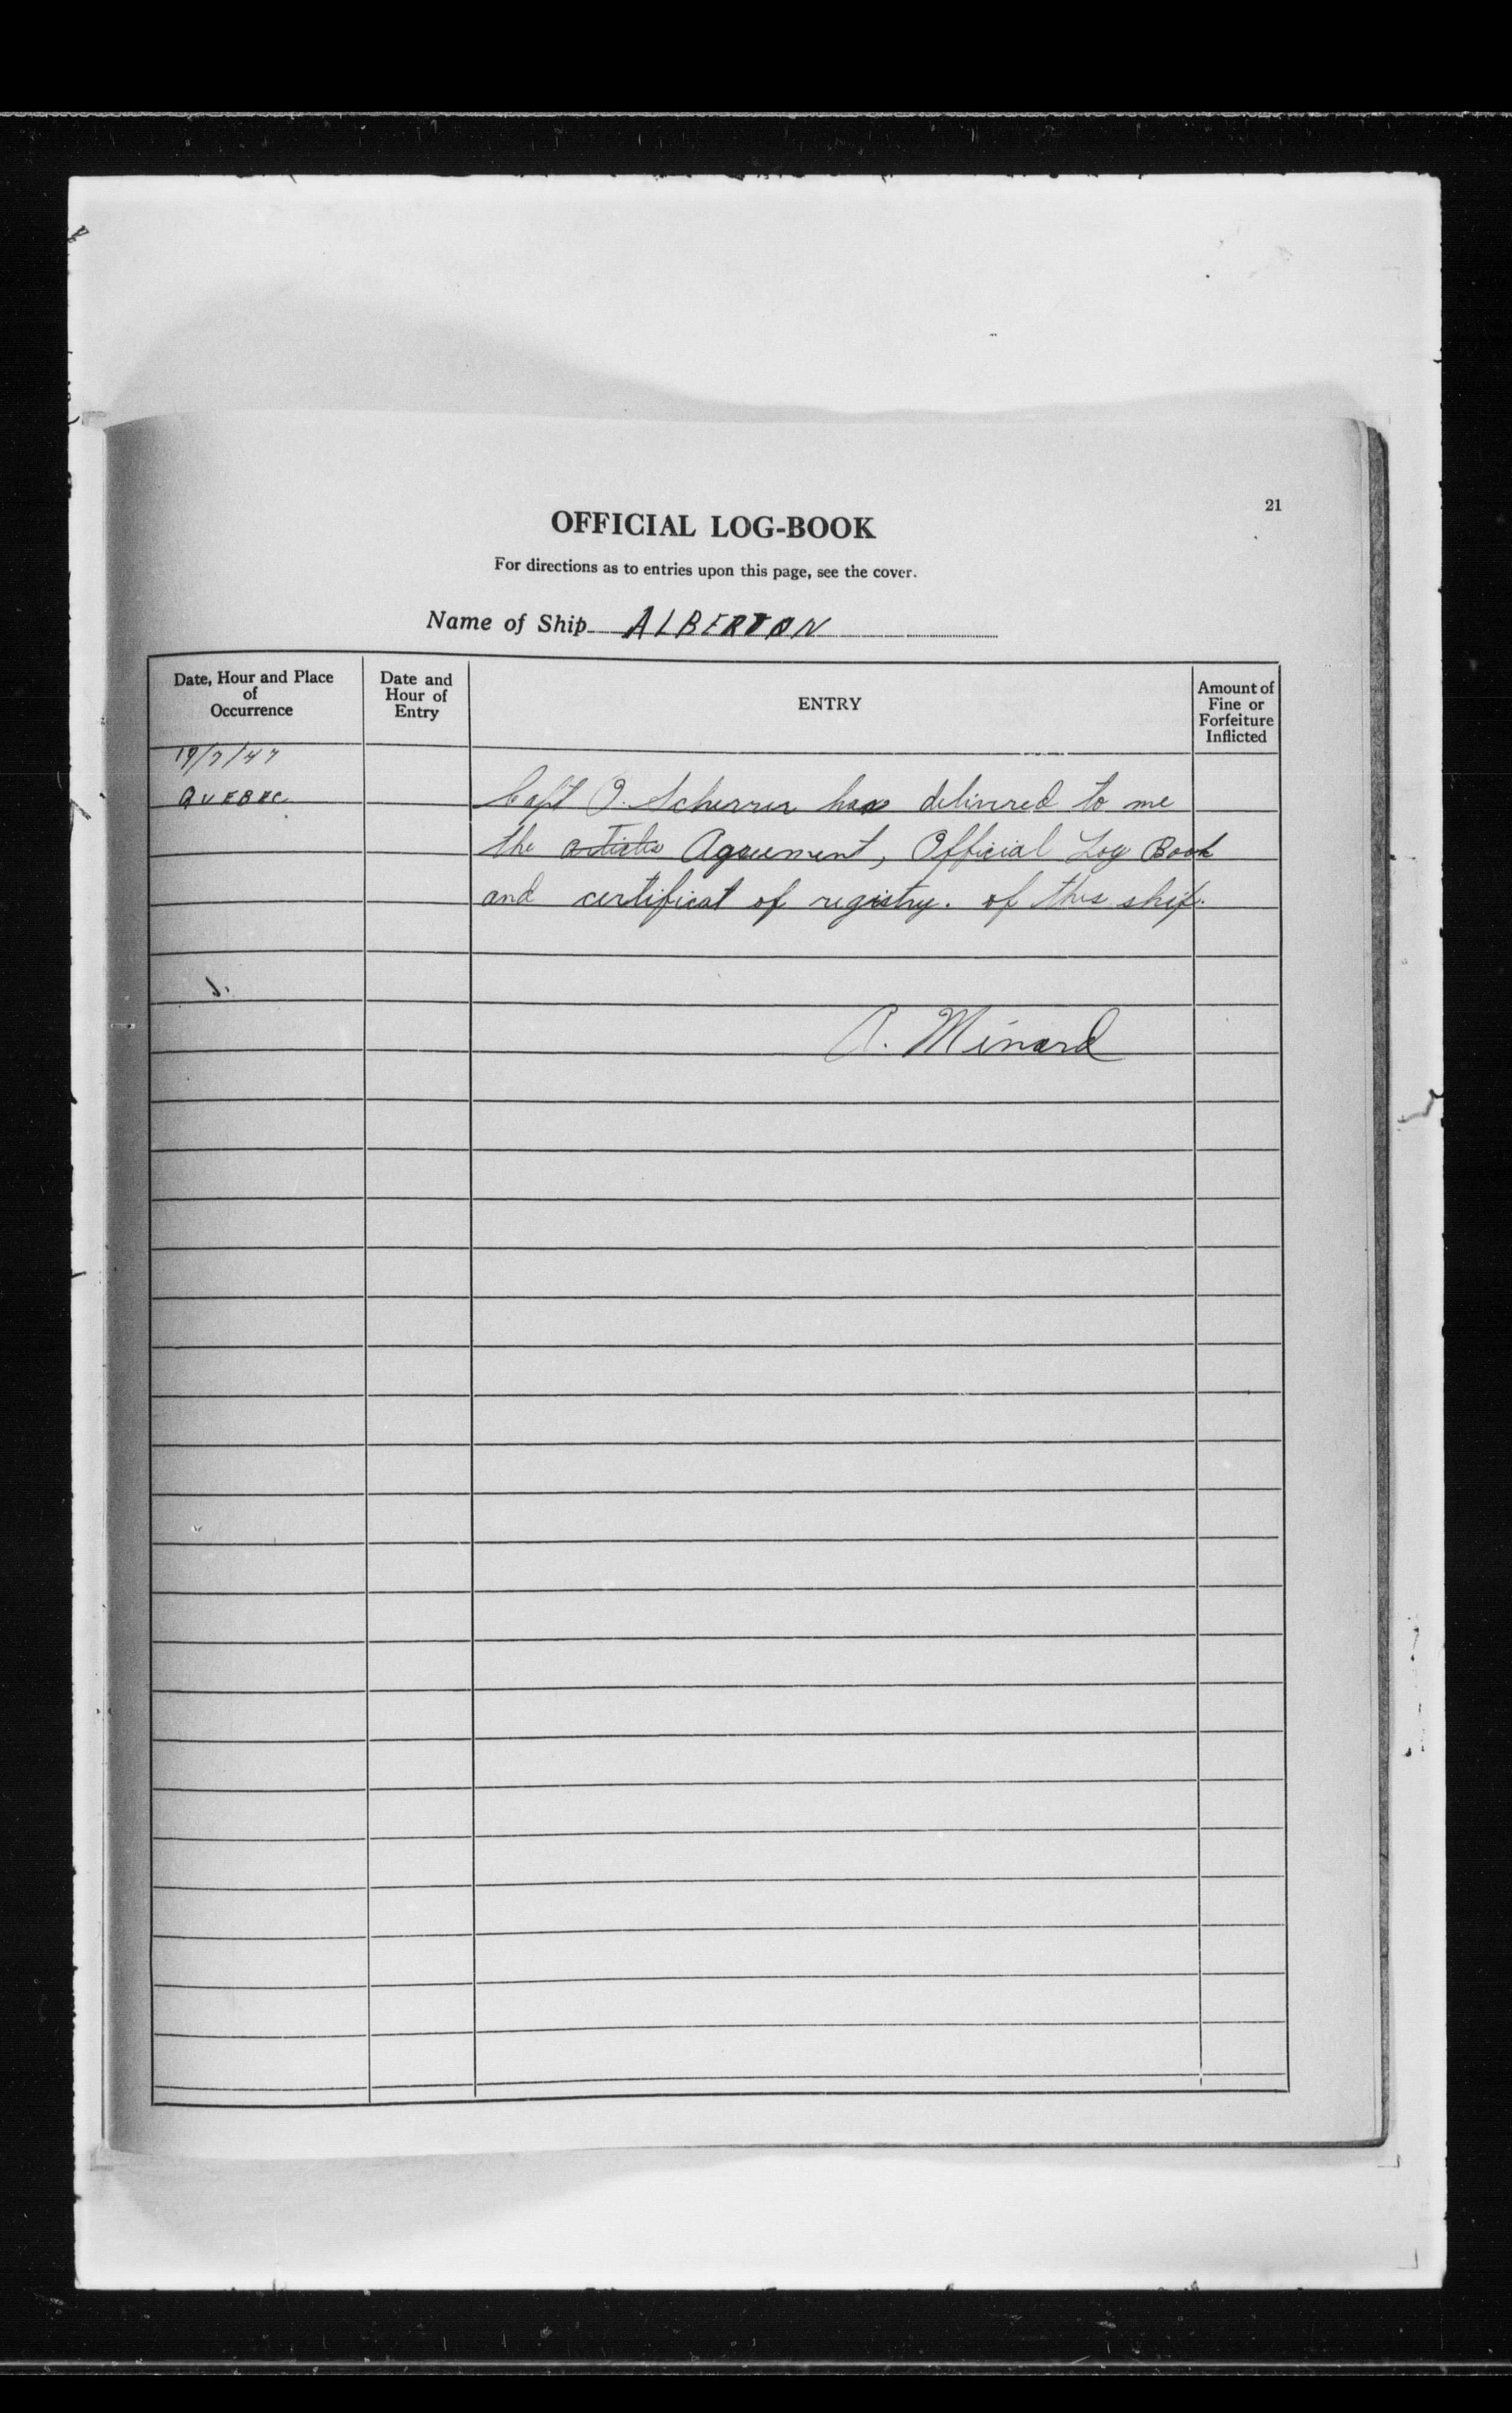 21
OFFICIAL LOG-BOOK
For directions as to entries upon this page, see the cover.
Name of Ship ALBERTON
Date, Hour and Place of Occurrence
Date and Hour of Entry
ENTRY
Amount of Fine or Forfeiture Inflicted
19/7/47
QUEBEC
Capt O. Scherrer has delivered to me
the articles Agreement, Official Log Book
and certificat of registry. of this ship.
A. Minard